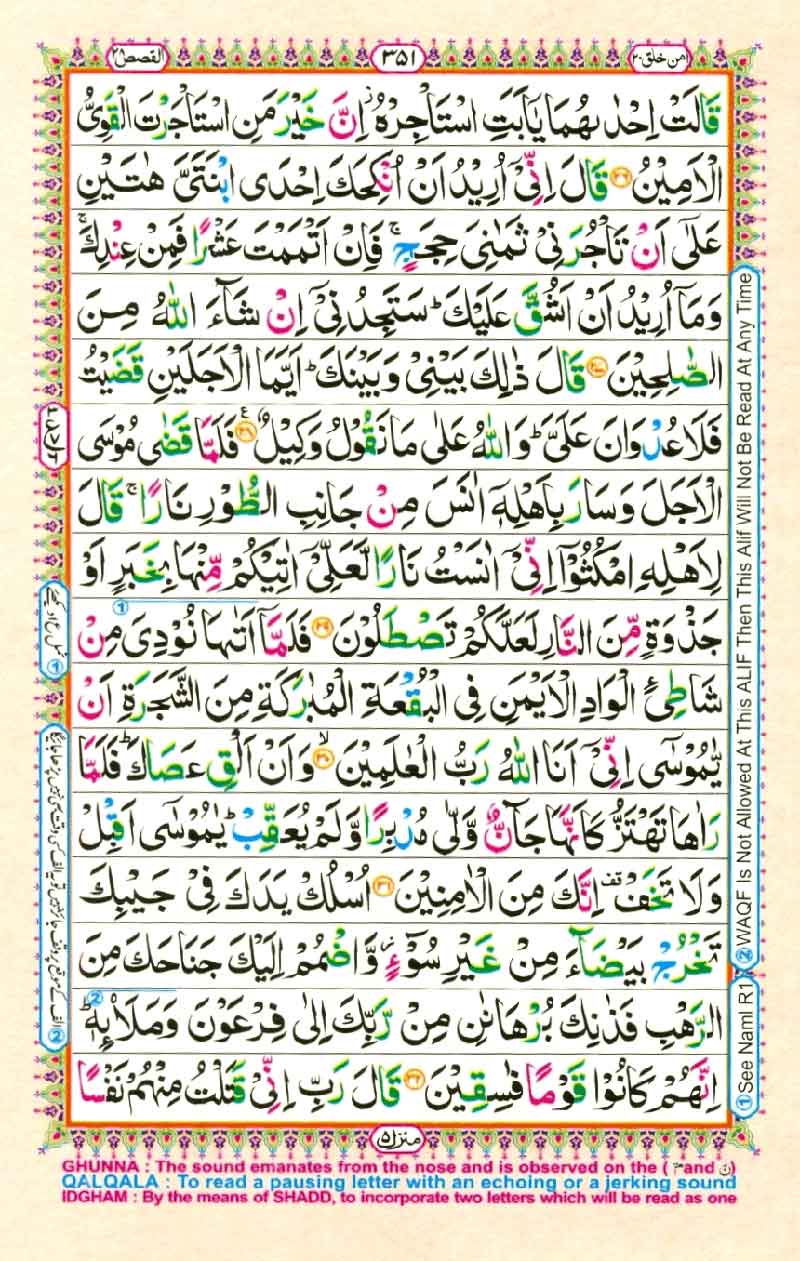 القصص ٢٨
٣٥١
امن خلق ٢٠
قَالَتْ اِحْدٰىهُمَا يٰۤاَبَتِ اسْتَاْجِرْهُ ؗ اِنَّ خَيْرَ مَنِ اسْتَاْجَرْتَ الْقَوِيُّ
الْاَمِيْنُ ۝٢٦ قَالَ اِنِّيْۤ اُرِيْدُ اَنْ اُنْكِحَكَ اِحْدَى ابْنَتَيَّ هٰتَيْنِ
عَلٰۤى اَنْ تَاْجُرَنِيْ ثَمٰنِيَ حِجَجٍ ۚ فَاِنْ اَتْمَمْتَ عَشْرًا فَمِنْ عِنْدِكَ ۚ
وَمَاۤ اُرِيْدُ اَنْ اَشُقَّ عَلَيْكَ ؕ سَتَجِدُنِيْۤ اِنْ شَآءَ اللّٰهُ مِنَ
الصّٰلِحِيْنَ ۝٢٧ قَالَ ذٰلِكَ بَيْنِيْ وَبَيْنَكَ ؕ اَيَّمَا الْاَجَلَيْنِ قَضَيْتُ
فَلَا عُدْوَانَ عَلَيَّ ؕ وَاللّٰهُ عَلٰى مَا نَقُوْلُ وَكِيْلٌ ۝٢٨ فَلَمَّا قَضٰى مُوْسَى
الْاَجَلَ وَسَارَ بِاَهْلِهٖۤ اٰنَسَ مِنْ جَانِبِ الطُّوْرِ نَارًا ۚ قَالَ
لِاَهْلِهِ امْكُثُوْۤا اِنِّيْۤ اٰنَسْتُ نَارًا لَّعَلِّيْۤ اٰتِيْكُمْ مِّنْهَا بِخَبَرٍ اَوْ
جَذْوَةٍ مِّنَ النَّارِ لَعَلَّكُمْ تَصْطَلُوْنَ ۝٢٩ فَلَمَّاۤ اَتٰىهَا نُوْدِيَ مِنْ
شَاطِئِ الْوَادِ الْاَيْمَنِ فِي الْبُقْعَةِ الْمُبٰرَكَةِ مِنَ الشَّجَرَةِ اَنْ
يّٰمُوْسٰۤى اِنِّيْۤ اَنَا اللّٰهُ رَبُّ الْعٰلَمِيْنَ ۝٣٠ وَاَنْ اَلْقِ عَصَاكَ ؕ فَلَمَّا
رَاٰهَا تَهْتَزُّ كَاَنَّهَا جَآنٌّ وَّلّٰى مُدْبِرًا وَّلَمْ يُعَقِّبْ ؕ يٰمُوْسٰۤى اَقْبِلْ
وَلَا تَخَفْ ۫ اِنَّكَ مِنَ الْاٰمِنِيْنَ ۝٣١ اُسْلُكْ يَدَكَ فِيْ جَيْبِكَ
تَخْرُجْ بَيْضَآءَ مِنْ غَيْرِ سُوْٓءٍ ؗ وَّاضْمُمْ اِلَيْكَ جَنَاحَكَ مِنَ
الرَّهْبِ فَذٰنِكَ بُرْهَانٰنِ مِنْ رَّبِّكَ اِلٰى فِرْعَوْنَ وَمَلَا۟ئِهٖ ؕ
اِنَّهُمْ كَانُوْا قَوْمًا فٰسِقِيْنَ ۝٣٢ قَالَ رَبِّ اِنِّيْ قَتَلْتُ مِنْهُمْ نَفْسًا
منزل ٥
① See Naml R1
② WAQF Is Not Allowed At This ALIF Then This Alif Will Not Be Read At Any Time
GHUNNA : The sound emanates from the nose and is observed on the ( م and ن )
QALQALA : To read a pausing letter with an echoing or a jerking sound
IDGHAM : By the means of SHADD, to incorporate two letters which will be read as one